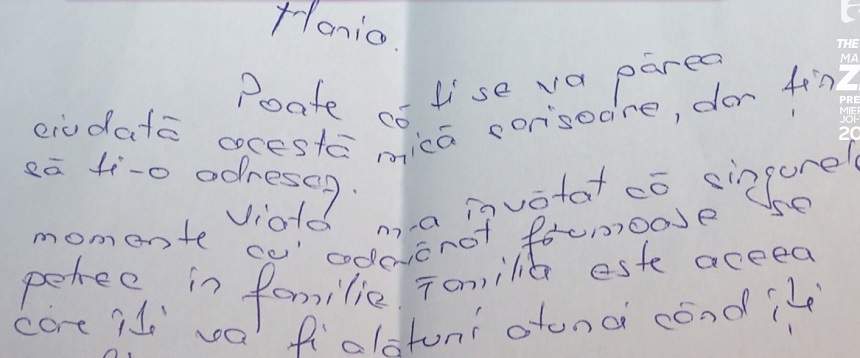 Maria.
Poate că ți se va părea
ciudată această mică scrisoare, dar țin
să ți-o adresez.
Viața m-a învățat că singurele
momente cu adevărat frumoase se
petrec în familie. Familia este aceea
care îți va fi alături atunci când îți
THE
MA
Z
PRE
MIE
JOI
20